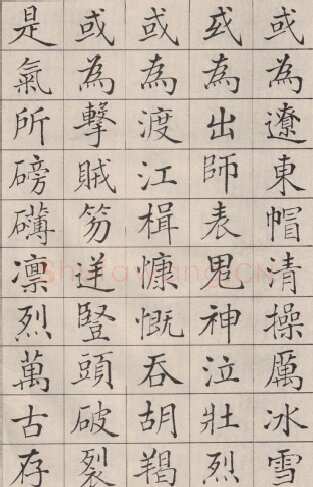 或為遼東帽清操厲冰雪
或為出師表鬼神泣壯烈
或為渡江楫慷慨吞胡羯
或為擊賊笏逆豎頭破裂
是氣所磅礴凛烈萬古存